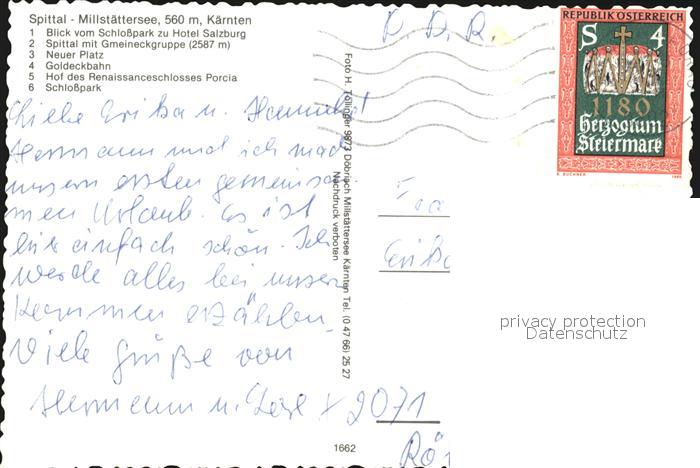 Spittal - Millstättersee, 560 m, Kärnten
1 Blick vom Schloßpark zu Hotel Salzburg
2 Spittal mit Gmeineckgruppe (2587 m)
3 Neuer Platz
4 Goldeckbahn
5 Hof des Renaissanceschlosses Porcia
6 Schloßpark
D. D. R.
REPUBLIK ÖSTERREICH
S 4
1180
Herzogtum
Steiermark
Liebe Erika u.
Hermann und ich
unsern ersten gemeinsa-
men Urlaub. Es ist
hier einfach schön. Ich
werde alles bei unserm
Kommen erzählen.
Viele Grüße von
Hermann u.
Foto H. Tollinger 9873 Döbriach Millstättersee Kärnten Tel. (0 47 66) 25 27
Nachdruck verboten
Erika
privacy protection
Datenschutz
2071
Rö
1662